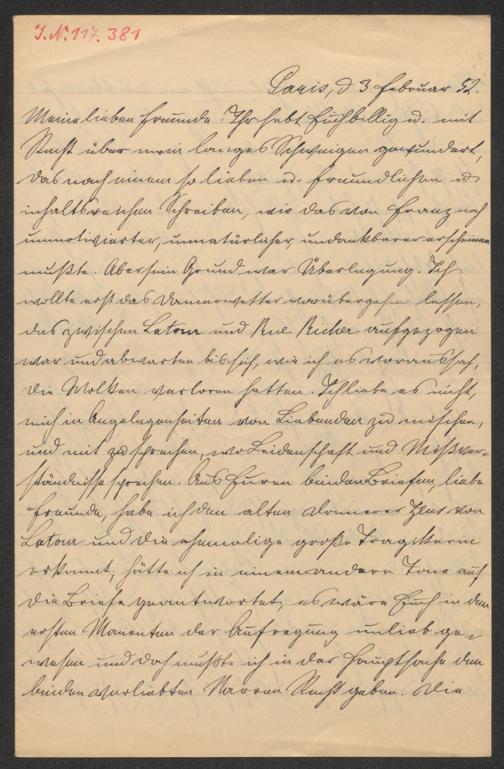 J.N. 117.381
Paris, d 3 Februar 52.
Meine lieben Freunde! Ihr habt Euch billig u. mit
Recht über mein langes Schweigen gewundert,
das nach einem so lieben u. freundlichen u.
inhaltsreichen Schreiben, wie das von Franz noch
unmotivirter, unnatürlicher, undankbarer erscheinen
mußte. Aber sein Grund war Überlegung. Ich
wollte erst das Donnerwetter vorübergehen lassen,
das zwischen Latour und Rue Richer aufgezogen
war und abwarten bis sich, wie ich es voraussah,
die Wolken verloren hatten. Ich liebe es nicht,
mich in Angelegenheiten von Liebenden zu mischen,
und mit zu sprechen, wo Leidenschaft und Mißver-
ständnisse sprechen. Aus Euren beiden Briefen, liebe
Freunde, habe ich den alten Donnerer Zeus von
Latour und die ehemalige große Tragikerin
erkannt; hätte ich in einem andern Tone auf
die Briefe geantwortet, es wäre Euch in den
ersten Momenten der Aufregung unlieb ge-
wesen und doch mußte ich in der Hauptsache den
beiden verliebten Narren Recht geben. Die